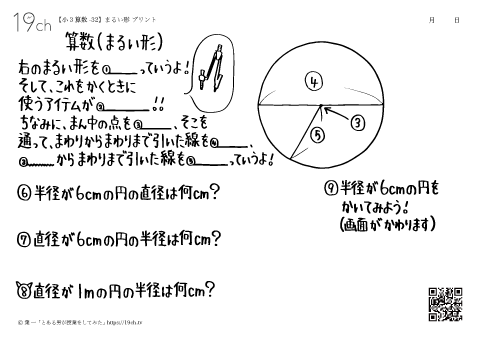 19ch 【小3算数-32】まるい形 プリント 月 日
算数(まるい形)
右のまるい形を①____っていうよ!
そして、これをかくときに
使うアイテムが②______!!
ちなみに、まん中の点を③____、そこを
通って、まわりからまわりまで引いた線を④____、
③____からまわりまで引いた線を⑤____っていうよ!
④
③
⑤
⑥半径が6cmの円の直径は何cm?
⑦直径が6cmの円の半径は何cm?
⑧直径が1mの円の半径は何cm?
⑨半径が6cmの円を
かいてみよう!
(画面がかわります)
© 葉一「とある男が授業をしてみた」https://19ch.tv